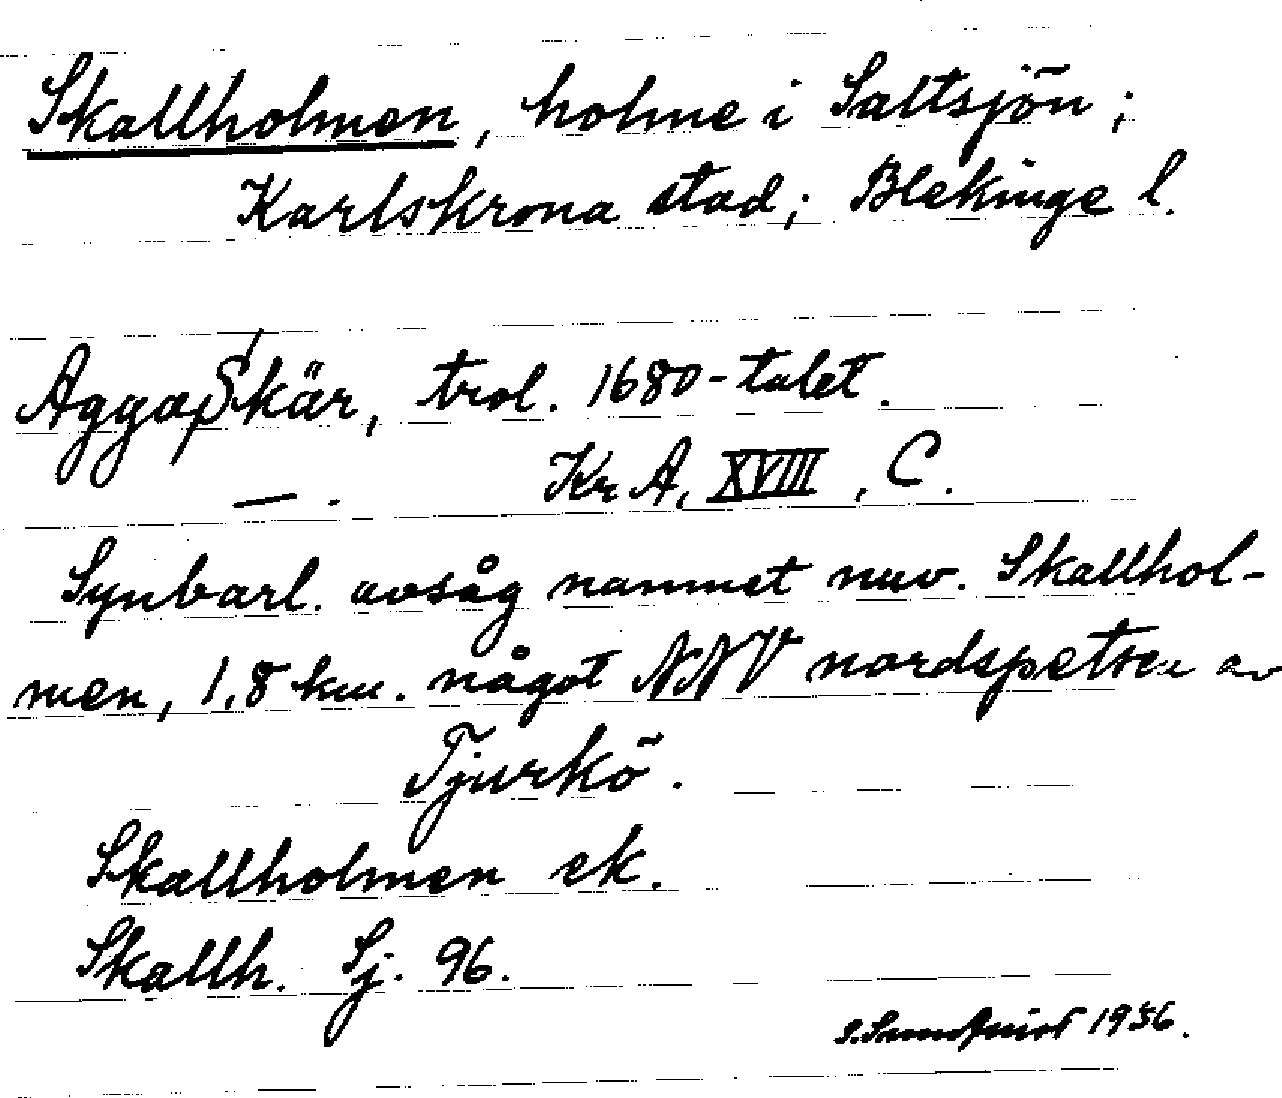 Skallholmen, holme i Saltsjön;
Karlskrona stad; Blekinge l.
Aggaskär, trol. 1680-talet.
— . Kr A, XVIII, C.
Synbarl. avsåg namnet nuv. Skallhol-
men, 1,8 km. något NNV nordspetsen av
Tjurkö.
Skallholmen ek.
Skallh. Sj. 96.
S. Sundquist 1936.